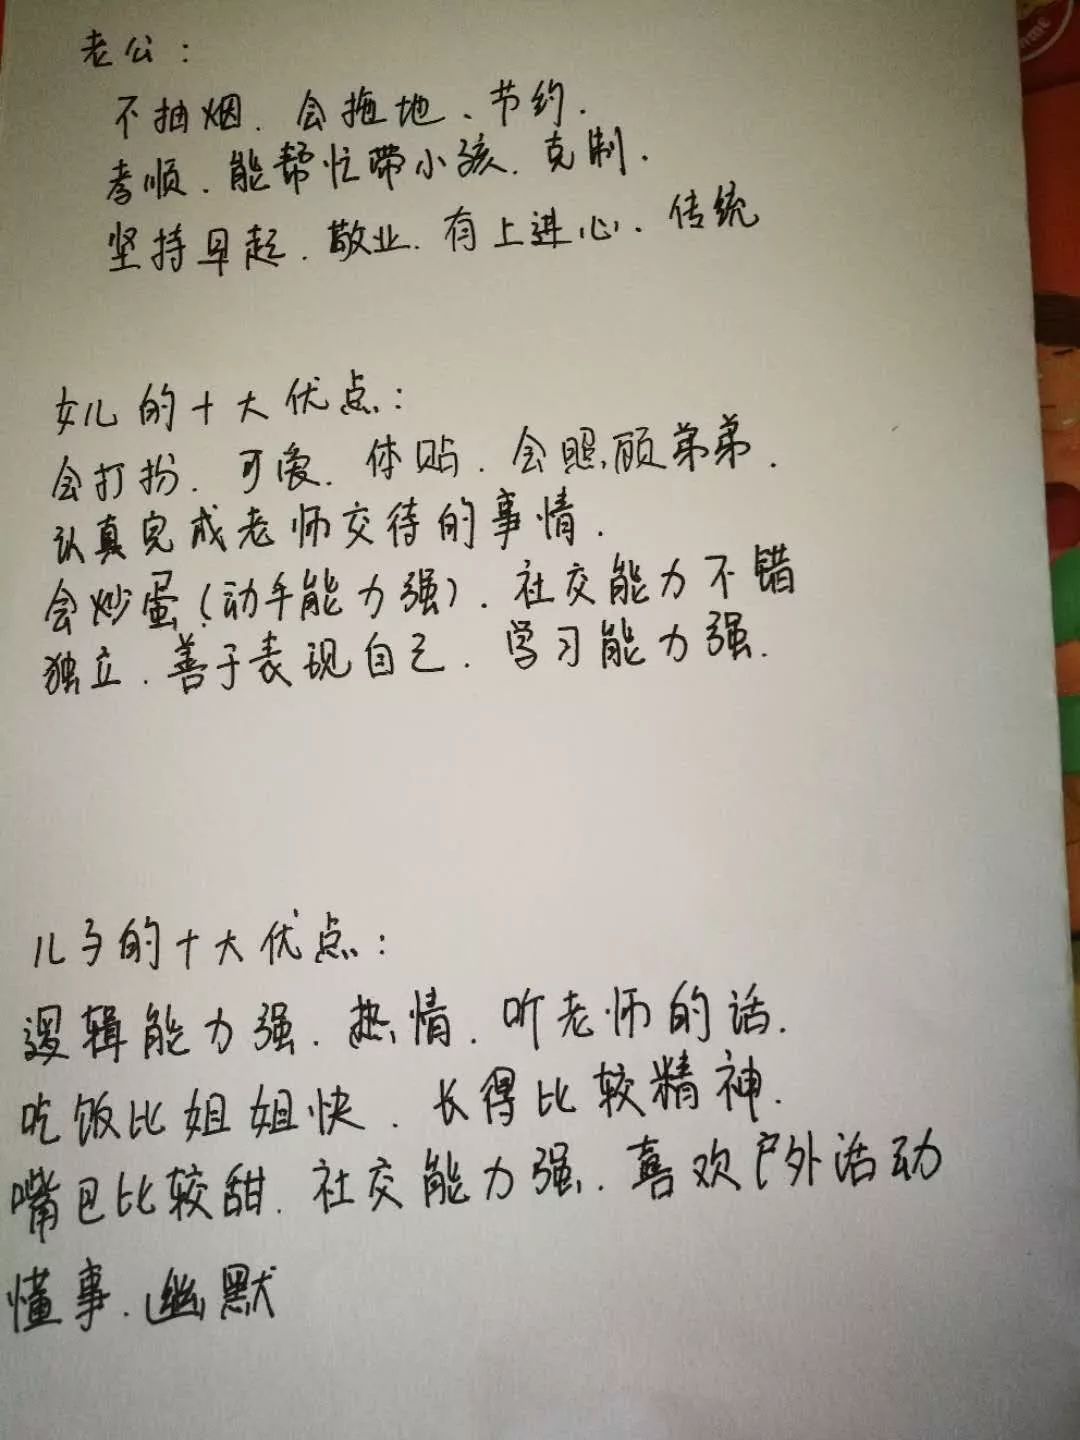 老公：
不抽烟．会拖地、节约．
孝顺．能帮忙带小孩．克制．
坚持早起．敬业．有上进心．传统
女儿的十大优点：
会打扮．可爱．体贴．会照顾弟弟．
认真完成老师交待的事情．
会炒蛋（动手能力强）．社交能力不错
独立．善于表现自己．学习能力强．
儿子的十大优点：
逻辑能力强．热情．听老师的话．
吃饭比姐姐快．长得比较精神．
嘴巴比较甜．社交能力强．喜欢户外活动
懂事．幽默